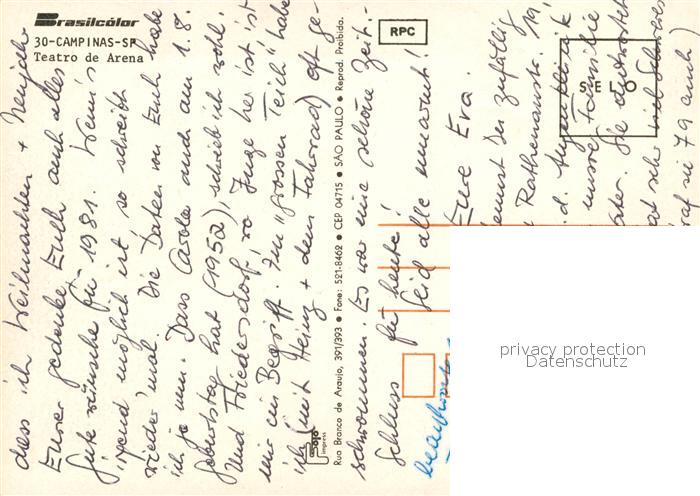 Brasilcolor
30-CAMPINAS-SP
Teatro de Arena
RPC
SELO
Rua Branco de Araujo, 391/393 • Fone: 521-8462 • CEP 04715 • SÃO PAULO • Reprod. Proibida.
impress
dass ich Weihnachten + Neujahr
Eurer gedenke Euch auch alles
Gute wünsche für 1981. Wenn's
irgend möglich ist, so schreibt
wieder 'mal. Die Daten von Euch habe
ich ja nun. Dass Carola auch am 1.8.
Geburtstag hat (1952), schrieb ich wohl.
Und Friedersdorf! Juge her ist ist
mir ein Begriff. Im "grossen Teich" habe
ich (mit Heinz + dem Fahrrad) oft ge-
schwommen. Es war eine schöne Zeit.-
Schluss für heute!
Seid alle umarmt!
Eure Eva.
kennst Du zufällig
Rathenaustr. 19,
d. Augenklinik
unsre Familie
viel
79 auch)
privacy protection
Datenschutz